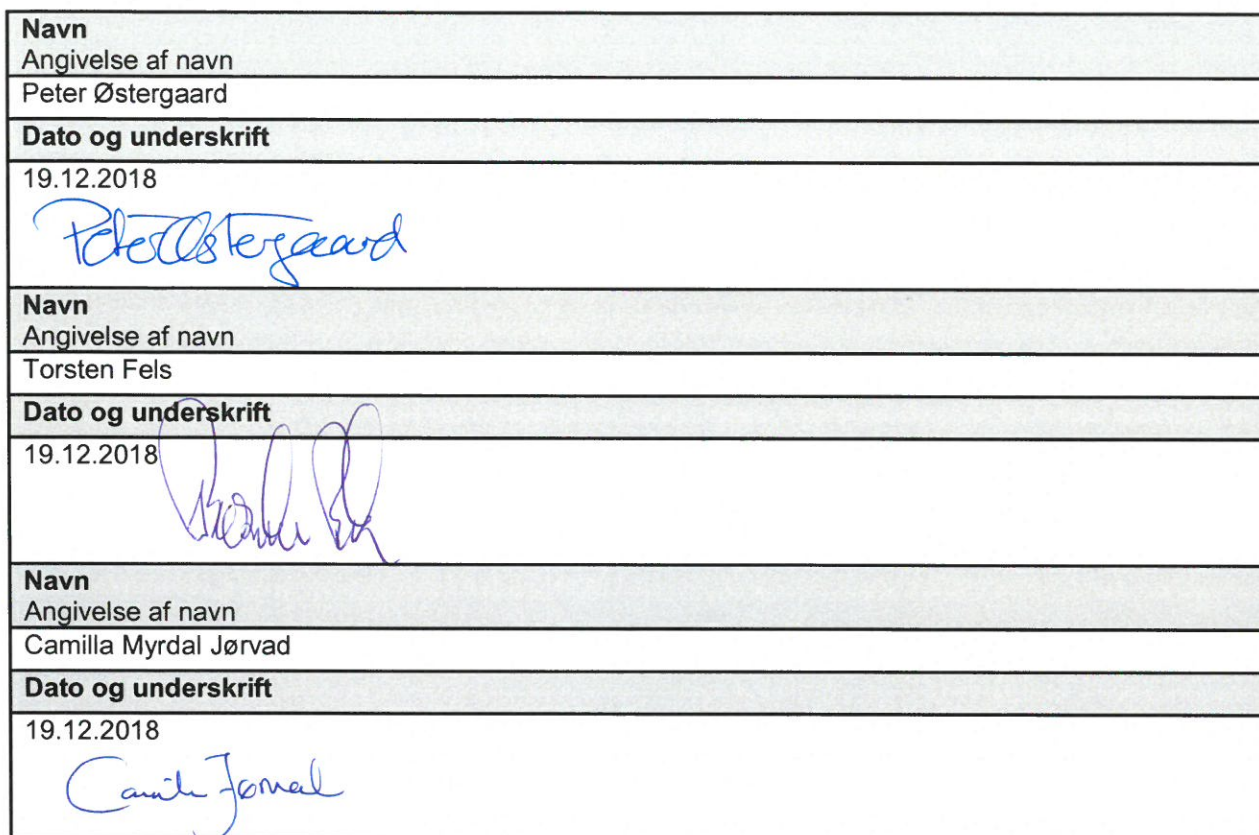 Navn
Angivelse af navn
Peter Østergaard
Dato og underskrift
19.12.2018
Peter Østergaard
Navn
Angivelse af navn
Torsten Fels
Dato og underskrift
19.12.2018
Navn
Angivelse af navn
Camilla Myrdal Jørvad
Dato og underskrift
19.12.2018
Camilla Jørvad